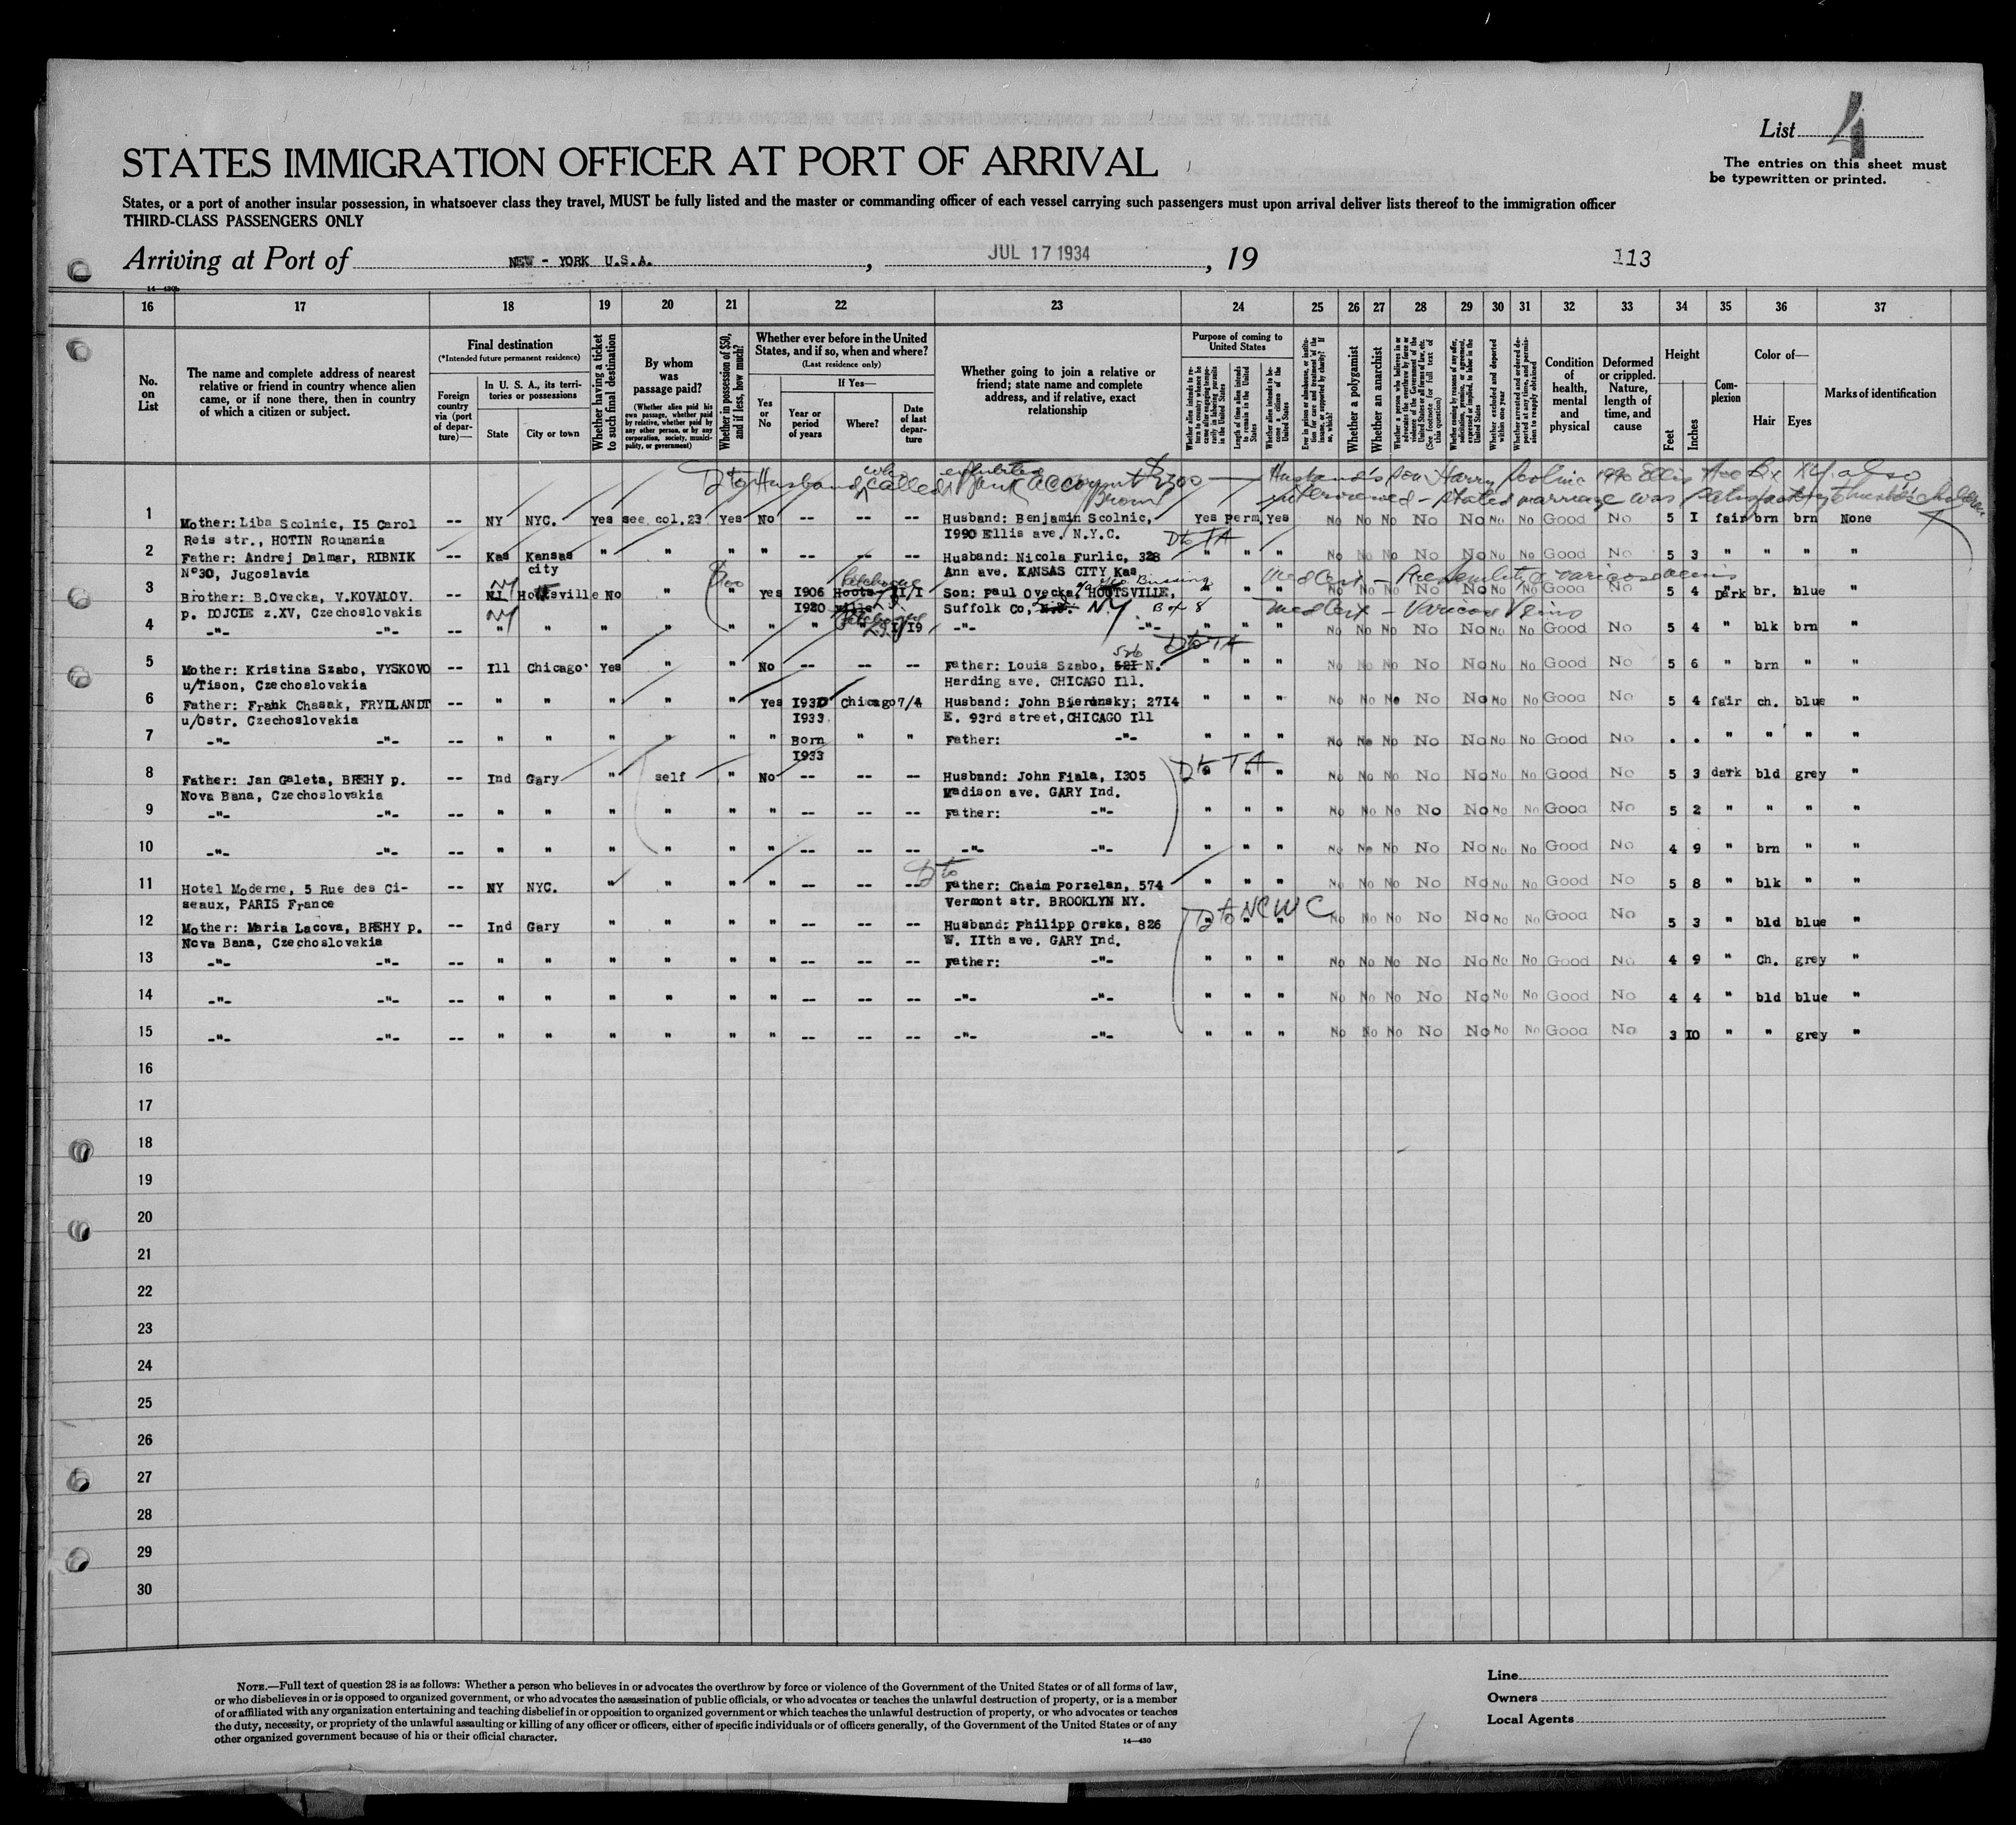 List 4
The entries on this sheet must
be typewritten or printed.
STATES IMMIGRATION OFFICER AT PORT OF ARRIVAL
States, or a port of another insular possession, in whatsoever class they travel, MUST be fully listed and the master or commanding officer of each vessel carrying such passengers must upon arrival deliver lists thereof to the immigration officer
THIRD-CLASS PASSENGERS ONLY
Arriving at Port of NEW - YORK U.S.A. , JUL 17 1934 , 19 113
16 17 18 19 20 21 22 23 24 25 26 27 28 29 30 31 32 33 34 35 36 37
No. on List
The name and complete address of nearest relative or friend in country whence alien came, or if none there, then in country of which a citizen or subject.
Final destination
(*Intended future permanent residence)
Foreign country via (port of departure)—
In U. S. A., its territories or possessions
State City or town
Whether having a ticket to such final destination
By whom was passage paid?
(Whether alien paid his own passage, whether paid by relative, whether paid by any other person, or by any corporation, society, municipality, or government)
Whether in possession of $50, and if less, how much?
Whether ever before in the United States, and if so, when and where?
(Last residence only)
Yes or No
If Yes—
Year or period of years Where? Date of last departure
Whether going to join a relative or friend; state name and complete address, and if relative, exact relationship
Purpose of coming to United States
Length of time alien intends to remain in the United States
Whether alien intends to become a citizen of the United States
Whether a polygamist
Whether an anarchist
Whether excluded and deported within one year
Condition of health, mental and physical
Deformed or crippled. Nature, length of time, and cause
Height
Feet Inches
Complexion
Color of—
Hair Eyes
Marks of identification
D to Husband who called exhibited Bank account $2300 — Husband's son Harry Scolnic 1990 Ellis Ave Bx NY. also
interviewed - stated marriage was satisfactory to
1 Mother: Liba Scolnic, I5 Carol -- NY NYC. Yes see col.23 Yes No -- -- -- Husband: Benjamin Scolnic, Yes perm Yes No No No No No No No Good No 5 I fair brn brn None
Reis str., HOTIN Roumania I990 Ellis ave. N.Y.C. D to TA
2 Father: Andrej Dalmar, RIBNIK -- Kas Kansas " " " " -- -- -- Husband: Nicola Furlic, 328 " " " No No No No No No No Good No 5 3 " " " "
N°30, Jugoslavia city Ann ave. KANSAS CITY Kas
3 Brother: B.Ovecka, V.KOVALOV. -- NY Hootsville No " " Yes I906 II/I Son: Paul Ovecka, HOOTSVILLE, " " " No No No No No No No Good No 5 4 Dark br. blue "
p. DOJCIE z.XV, Czechoslovakia NY I920 Suffolk Co, NY Box 8 Med Cert - Varicose Veins
4 -"- -"- -- " " " " " " " I/I9 -"- -"- " " " No No No No No No No Good No 5 4 " blk brn "
5 Mother: Kristina Szabo, VYSKOVO -- Ill Chicago Yes " " No -- -- -- Father: Louis Szabo, 521 N. D to TA " " " No No No No No No No Good No 5 6 " brn " "
u/Tison, Czechoslovakia Harding ave. CHICAGO Ill.
6 Father: Frank Chasak, FRYDLANDT -- " " " " " Yes I93D Chicago 7/4 Husband: John Bieronsky; 27I4 " " " No No No No No No No Good No 5 4 fair ch. blue "
u/Ostr. Czechoslovakia I933 E. 93rd street, CHICAGO Ill
7 -"- -"- -- " " " " " " Born " " Father: -"- " " " No No No No No No No Good No . . " " " "
I933
8 Father: Jan Galeta, BREHY p. -- Ind Gary " self " No -- -- -- Husband: John Fiala, I305 D to TA " " " No No No No No No No Good No 5 3 dark bld grey "
Nova Bana, Czechoslovakia Madison ave. GARY Ind.
9 -"- -"- -- " " " " " " -- -- -- Father: -"- " " " No No No No No No No Good No 5 2 " " " "
10 -"- -"- -- " " " " " " -- -- -- -"- -"- " " " No No No No No No No Good No 4 9 " brn " "
11 Hotel Moderne, 5 Rue des Ci- -- NY NYC. " " " " -- -- -- D to Father: Chaim Porzelan, 574 " " " No No No No No No No Good No 5 8 " blk " "
seaux, PARIS France Vermont str. BROOKLYN NY.
12 Mother: Maria Lacova, BREHY p. -- Ind Gary " " " " -- -- -- Husband: Philipp Orska, 826 D to NCWC " " " No No No No No No No Good No 5 3 " bld blue "
Nova Bana, Czechoslovakia W. IIth ave. GARY Ind.
13 -"- -"- -- " " " " " " -- -- -- Father: -"- " " " No No No No No No No Good No 4 9 " Ch. grey "
14 -"- -"- -- " " " " " " -- -- -- -"- -"- " " " No No No No No No No Good No 4 4 " bld blue "
15 -"- -"- -- " " " " " " -- -- -- -"- -"- " " " No No No No No No No Good No 3 IO " " grey "
16
17
18
19
20
21
22
23
24
25
26
27
28
29
30
NOTE.—Full text of question 28 is as follows: Whether a person who believes in or advocates the overthrow by force or violence of the Government of the United States or of all forms of law,
or who disbelieves in or is opposed to organized government, or who advocates the assassination of public officials, or who advocates or teaches the unlawful destruction of property, or is a member
of or affiliated with any organization entertaining and teaching disbelief in or opposition to organized government or which teaches the unlawful destruction of property, or who advocates or teaches
the duty, necessity, or propriety of the unlawful assaulting or killing of any officer or officers, either of specific individuals or of officers generally, of the Government of the United States or of any
other organized government because of his or their official character.
14—430
Line
Owners
Local Agents